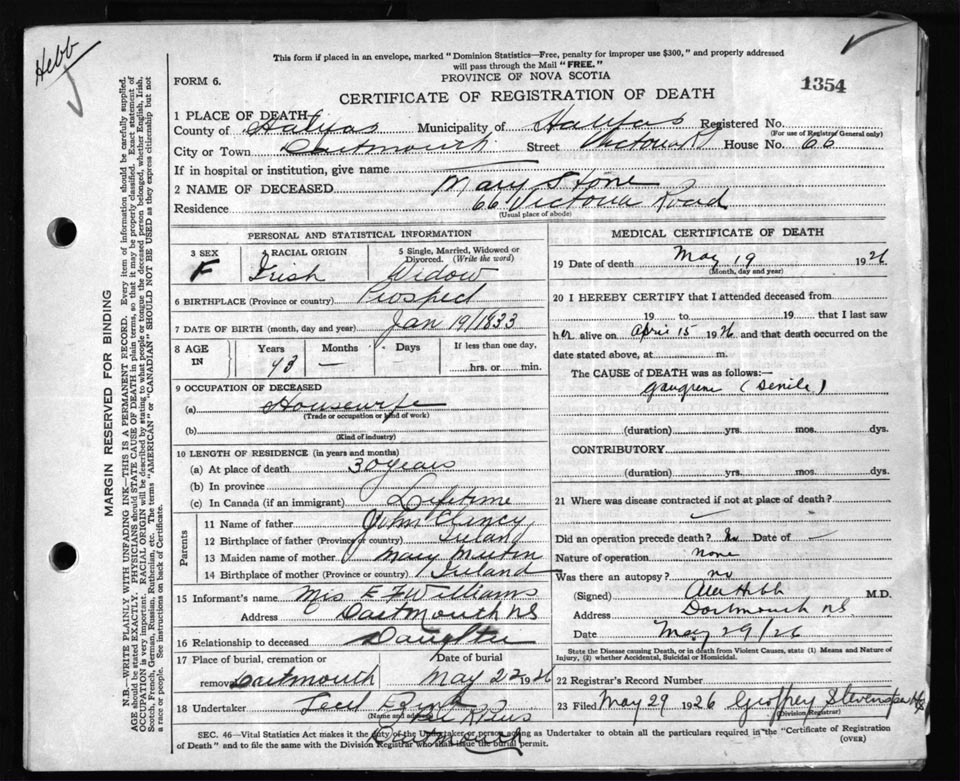 Hebb
This form if placed in an envelope, marked "Dominion Statistics—Free, penalty for improper use $300," and properly addressed
will pass through the Mail "FREE."
FORM 6.
PROVINCE OF NOVA SCOTIA
1354
CERTIFICATE OF REGISTRATION OF DEATH
1 PLACE OF DEATH
County of Halifax Municipality of Halifax Registered No.
(For use of Registrar General only)
City or Town Dartmouth Street Victoria Rd House No. 66
If in hospital or institution, give name
2 NAME OF DECEASED Mary Stone
Residence 66 Victoria Road
(Usual place of abode)
PERSONAL AND STATISTICAL INFORMATION
3 SEX F
4 RACIAL ORIGIN Irish
5 Single, Married, Widowed or Divorced. (Write the word) Widow
6 BIRTHPLACE (Province or country) Prospect
7 DATE OF BIRTH (month, day and year) Jan 19/1833
8 AGE IN Years 93 Months — Days If less than one day, hrs. or min.
9 OCCUPATION OF DECEASED
(a) Housewife
(Trade or occupation or kind of work)
(b)
(Kind of industry)
10 LENGTH OF RESIDENCE (in years and months)
(a) At place of death 30 years
(b) In province
(c) In Canada (if an immigrant) Lifetime
Parents
11 Name of father John Clancy
12 Birthplace of father (Province or country) Ireland
13 Maiden name of mother Mary
14 Birthplace of mother (Province or country) Ireland
15 Informant's name Mrs E F Williams
Address Dartmouth NS
16 Relationship to deceased Daughter
17 Place of burial, cremation or removal Dartmouth
Date of burial May 22 1926
18 Undertaker
(Name and address)
Dartmouth
MEDICAL CERTIFICATE OF DEATH
19 Date of death May 19 1926
(Month, day and year)
20 I HEREBY CERTIFY that I attended deceased from
19 to 19 that I last saw
her alive on April 15 1926 and that death occurred on
date stated above, at m.
The CAUSE of DEATH was as follows:—
gangrene (Senile)
(duration) yrs. mos. dys.
CONTRIBUTORY
(duration) yrs. mos. dys.
21 Where was disease contracted if not at place of death?
Did an operation precede death? No Date of —
Nature of operation none
Was there an autopsy? no
(Signed) Hebb M.D.
Address Dartmouth NS
Date May 29/26
State the Disease causing Death, or in death from Violent Causes, state (1) Means and Nature of
Injury, (2) whether Accidental, Suicidal or Homicidal.
22 Registrar's Record Number
23 Filed May 29 1926 Geoffrey Stevens
(Division Registrar)
SEC. 46—Vital Statistics Act makes it the duty of the Undertaker or person acting as Undertaker to obtain all the particulars required in the "Certificate of Registration
of Death" and to file the same with the Division Registrar who shall issue the burial permit.
(OVER)
MARGIN RESERVED FOR BINDING
N.B.—WRITE PLAINLY WITH UNFADING INK—THIS IS A PERMANENT RECORD. Every item of information should be carefully supplied.
AGE should be stated EXACTLY. PHYSICIANS should STATE CAUSE OF DEATH in plain terms, so that it may be properly classified. Exact statement of
OCCUPATION is very important. RACIAL ORIGIN will be described by stating to what people or tongue the deceased person belonged, whether English, Irish,
Scotch, French, German, Russian, Ruthenian, etc. The terms "AMERICAN" or "CANADIAN" SHOULD NOT BE USED as they express citizenship but not
a race or people. See instructions on back of Certificate.